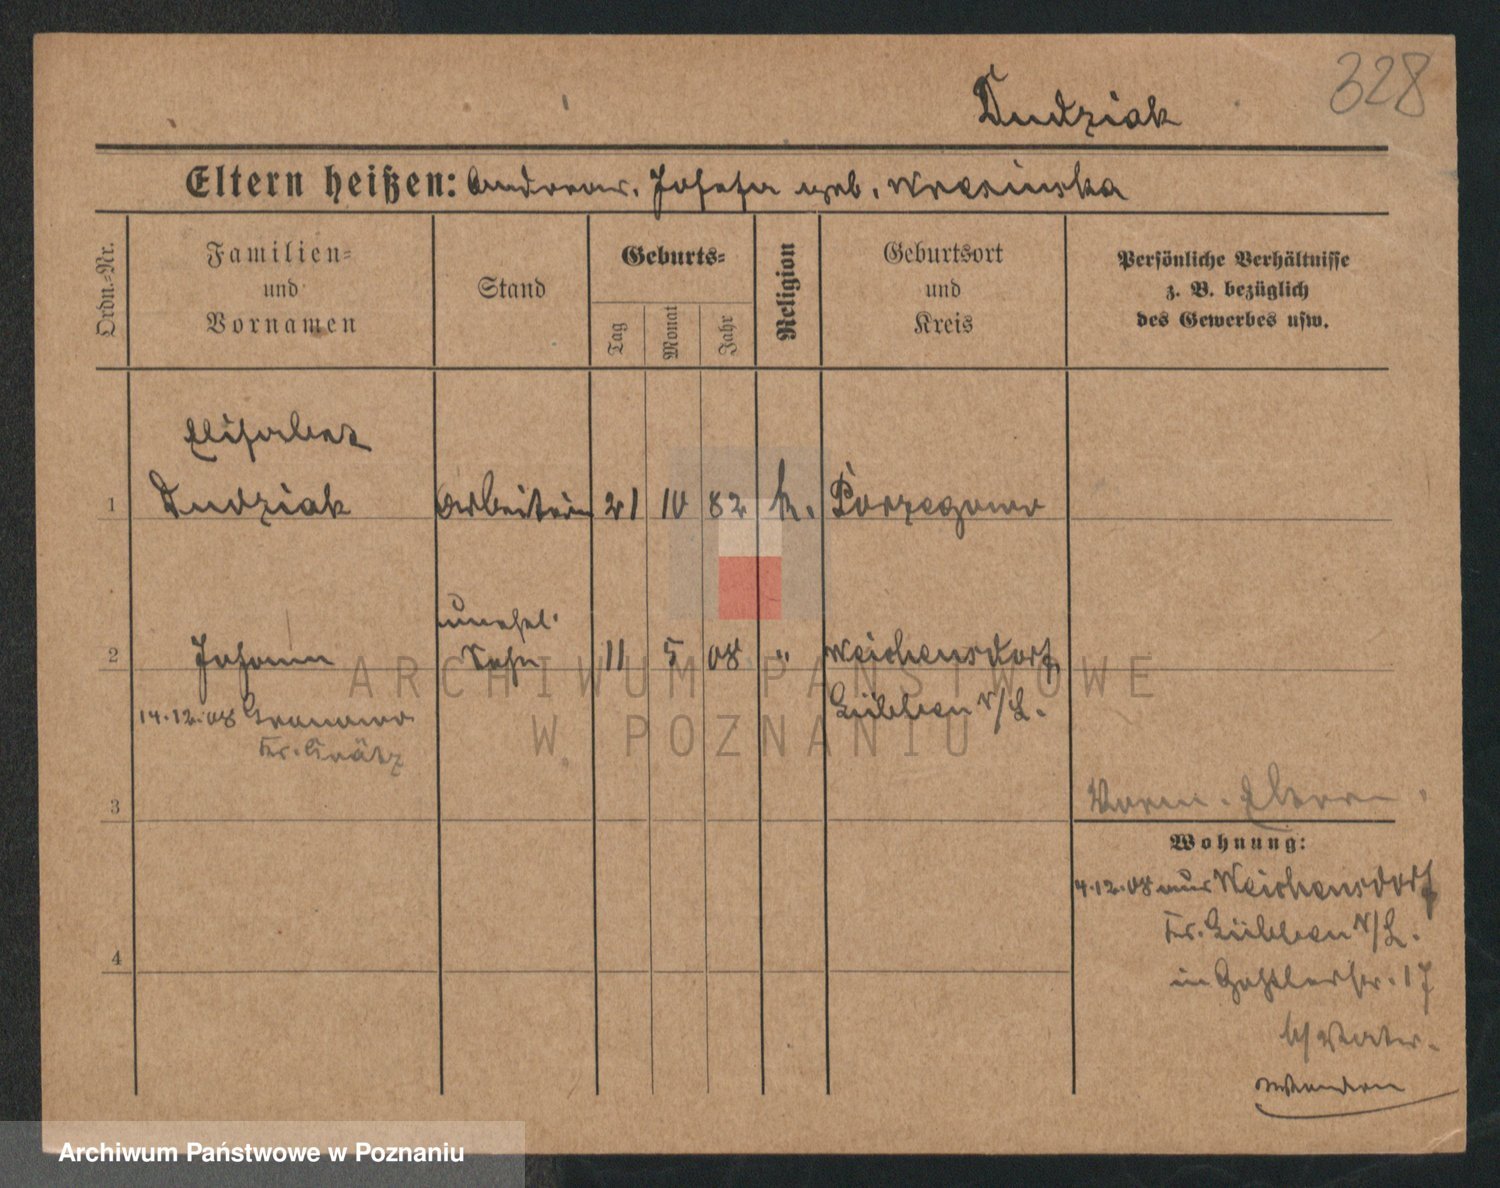 328
Dudziak
Eltern heißen: Andreas. Josefa geb. Wresinska
Ordn.-Nr.
Familien-
und
Vornamen
Stand
Geburts-
Tag
Monat
Jahr
Religion
Geburtsort
und
Kreis
Persönliche Verhältnisse
z. B. bezüglich
des Gewerbes usw.
Elisabet
1 Dudziak Arbeiterin 21 10 82 k.
unehel.
2 Johann Sohn 11 5 08 " Weichensdorf
Lübben N/L.
14.12.08 Granowo
Kr. Grätz
3
Vorm.
Wohnung:
4.12.08 aus Weichensdorf
Kr. Lübben N/L.
in 17
4
b/Vater.
Wenden
ARCHIWUM PAŃSTWOWE
W POZNANIU
Archiwum Państwowe w Poznaniu